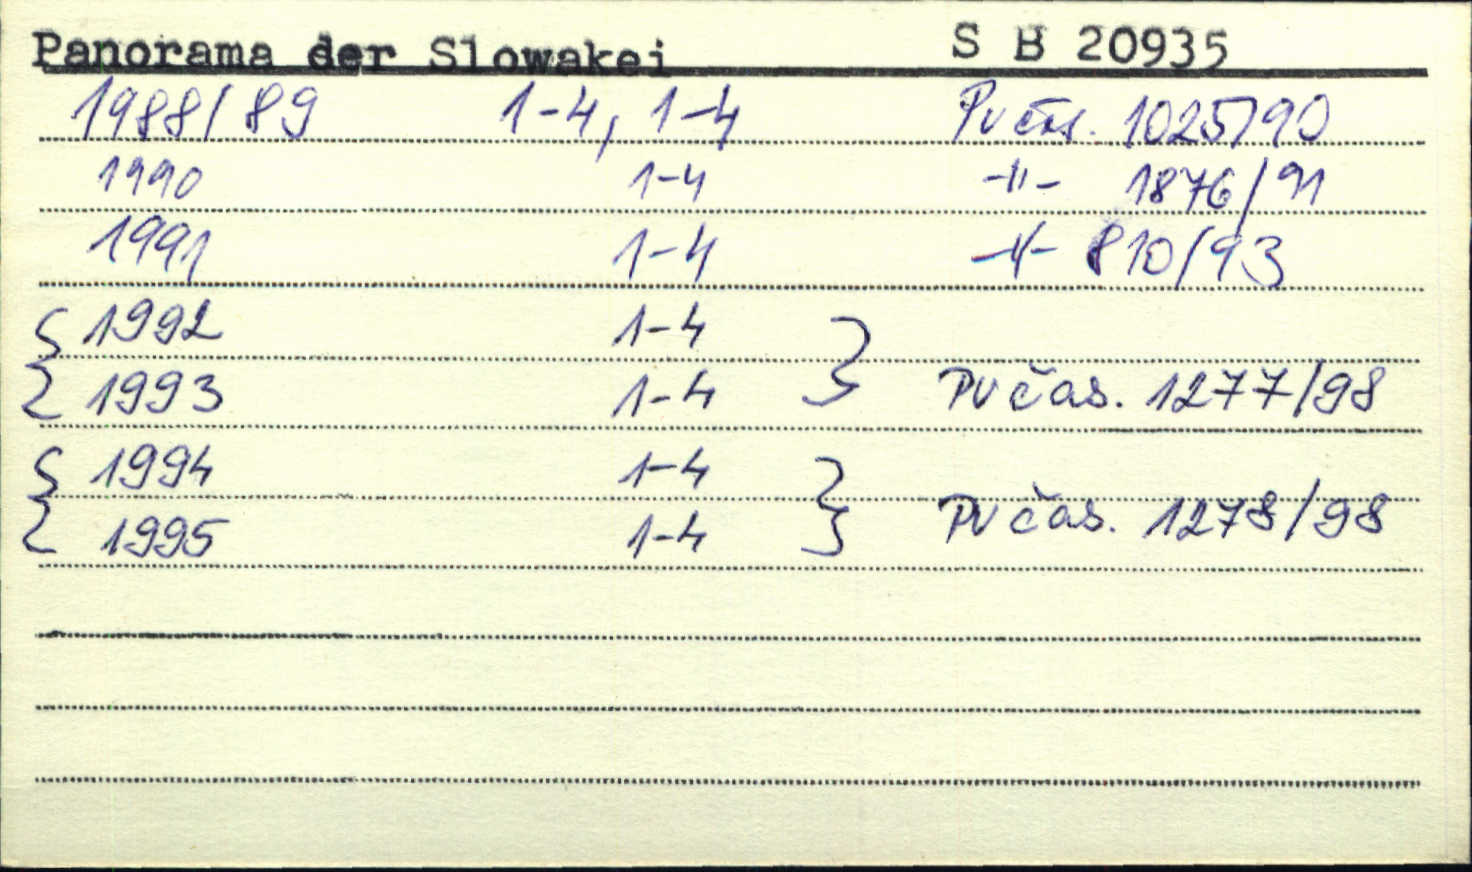 Panorama der Slowakei S B 20935
1988/89 1-4, 1-4 PV čas. 1025/90
1990 1-4 -"- 1876/91
1991 1-4 -"- 810/93
{ 1992 1-4 }
{ 1993 1-4 } PV čas. 1277/98
{ 1994 1-4 }
{ 1995 1-4 } PV čas. 1278/98